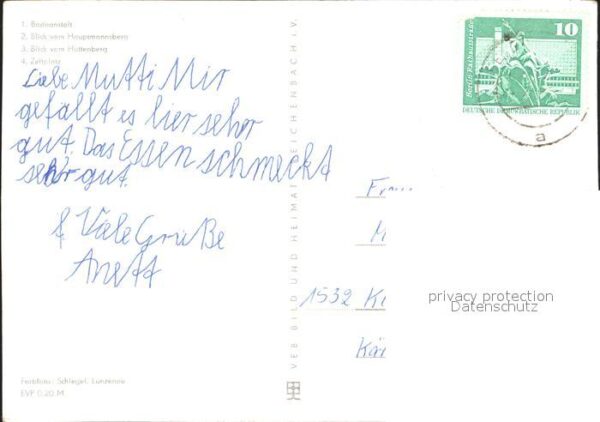 1. Badeanstalt
2. Blick vom Hauptmannsberg
3. Blick vom Hüttenberg
4. Zeltplatz
Liebe Mutti Mir
gefällt es hier sehr
gut. Das Essen schmeckt
sehr gut.
Viele Grüße
Anett
Farbfoto: Schlegel, Lunzenau
EVP 0,20 M
VEB BILD UND HEIMAT REICHENBACH i. V.
10
Berlin, Rathausstraße
DEUTSCHE DEMOKRATISCHE REPUBLIK
a
1532
privacy protection
Datenschutz